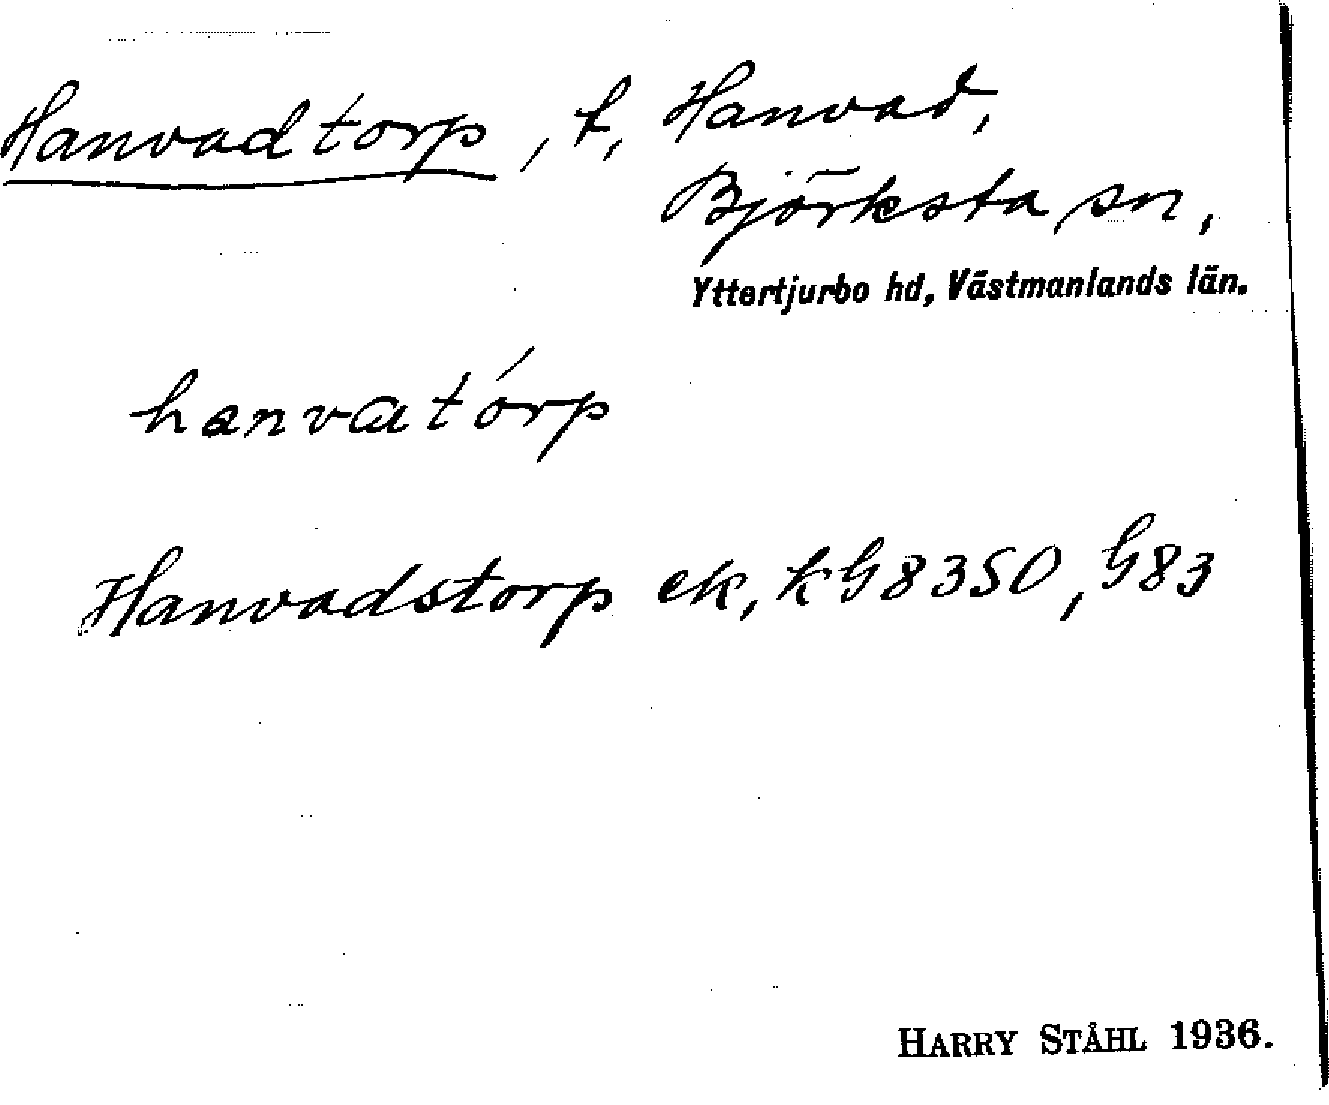 Hanvadtorp, t, Hanvad,
Björksta sn,
Yttertjurbo hd, Västmanlands län.
hanvatórp
Hanvadstorp ek, kG8350, G83
HARRY STÅHL 1936.